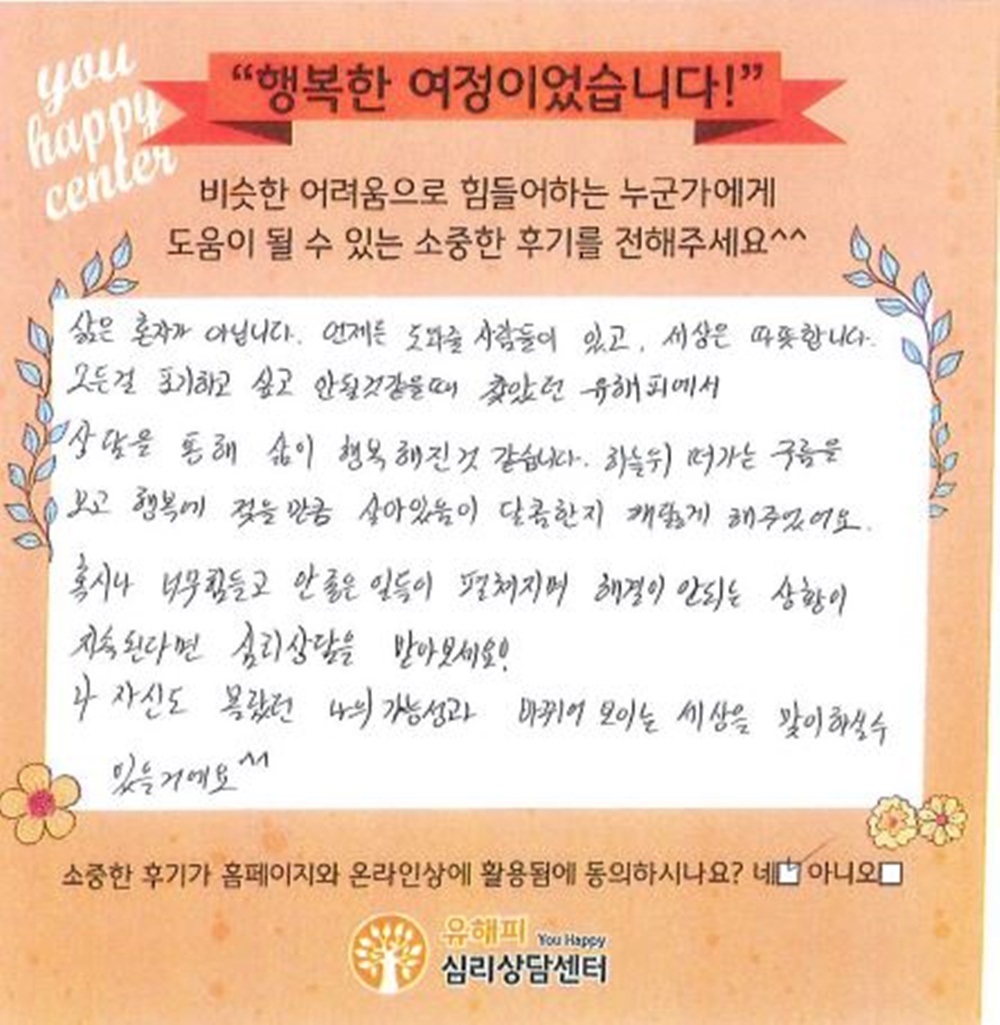 you
happy
center
“행복한 여정이었습니다!”
비슷한 어려움으로 힘들어하는 누군가에게
도움이 될 수 있는 소중한 후기를 전해주세요^^
삶은 혼자가 아닙니다. 언제든 도와줄 사람들이 있고, 세상은 따뜻합니다.
모든걸 포기하고 싶고 안될것같을때 찾았던 유해피에서
상담을 통해 삶이 행복해진것 같습니다. 하늘위 떠가는 구름을
보고 행복에 젖을만큼 살아있음이 달콤한지 깨닫게 해주었어요.
혹시나 너무힘들고 안좋은일들이 펼쳐지며 해결이 안되는 상황이
지속된다면 심리상담을 받아보세요!
나 자신도 몰랐던 나의가능성과 바뀌어 보이는 세상을 맞이하실수
있을거예요^^
소중한 후기가 홈페이지와 온라인상에 활용됨에 동의하시나요? 네 아니오
유해피 You Happy
심리상담센터